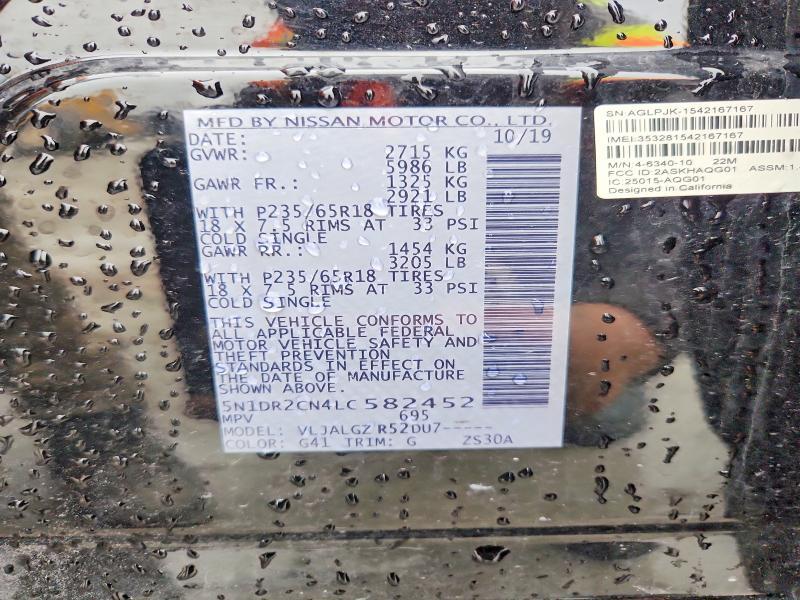 MFD BY NISSAN MOTOR CO., LTD.
DATE: 10/19
GVWR: 2715 KG
5986 LB
GAWR FR.: 1325 KG
2921 LB
WITH P235/65R18 TIRES
18 X 7.5 RIMS AT 33 PSI
COLD SINGLE
GAWR RR.: 1454 KG
3205 LB
WITH P235/65R18 TIRES
18 X 7.5 RIMS AT 33 PSI
COLD SINGLE
THIS VEHICLE CONFORMS TO
ALL APPLICABLE FEDERAL
MOTOR VEHICLE SAFETY AND
THEFT PREVENTION
STANDARDS IN EFFECT ON
THE DATE OF MANUFACTURE
SHOWN ABOVE.
5N1DR2CN4LC582452
MPV 695
MODEL: VLJALGZ R52DU7-----
COLOR: G41 TRIM: G ZS30A
SN:AGLPJK-1542167167
IMEI:353281542167167
M/N:4-6340-10 22M
FCC ID:2ASKHAQG01 ASSM:1.
IC:25015-AQG01
Designed in California